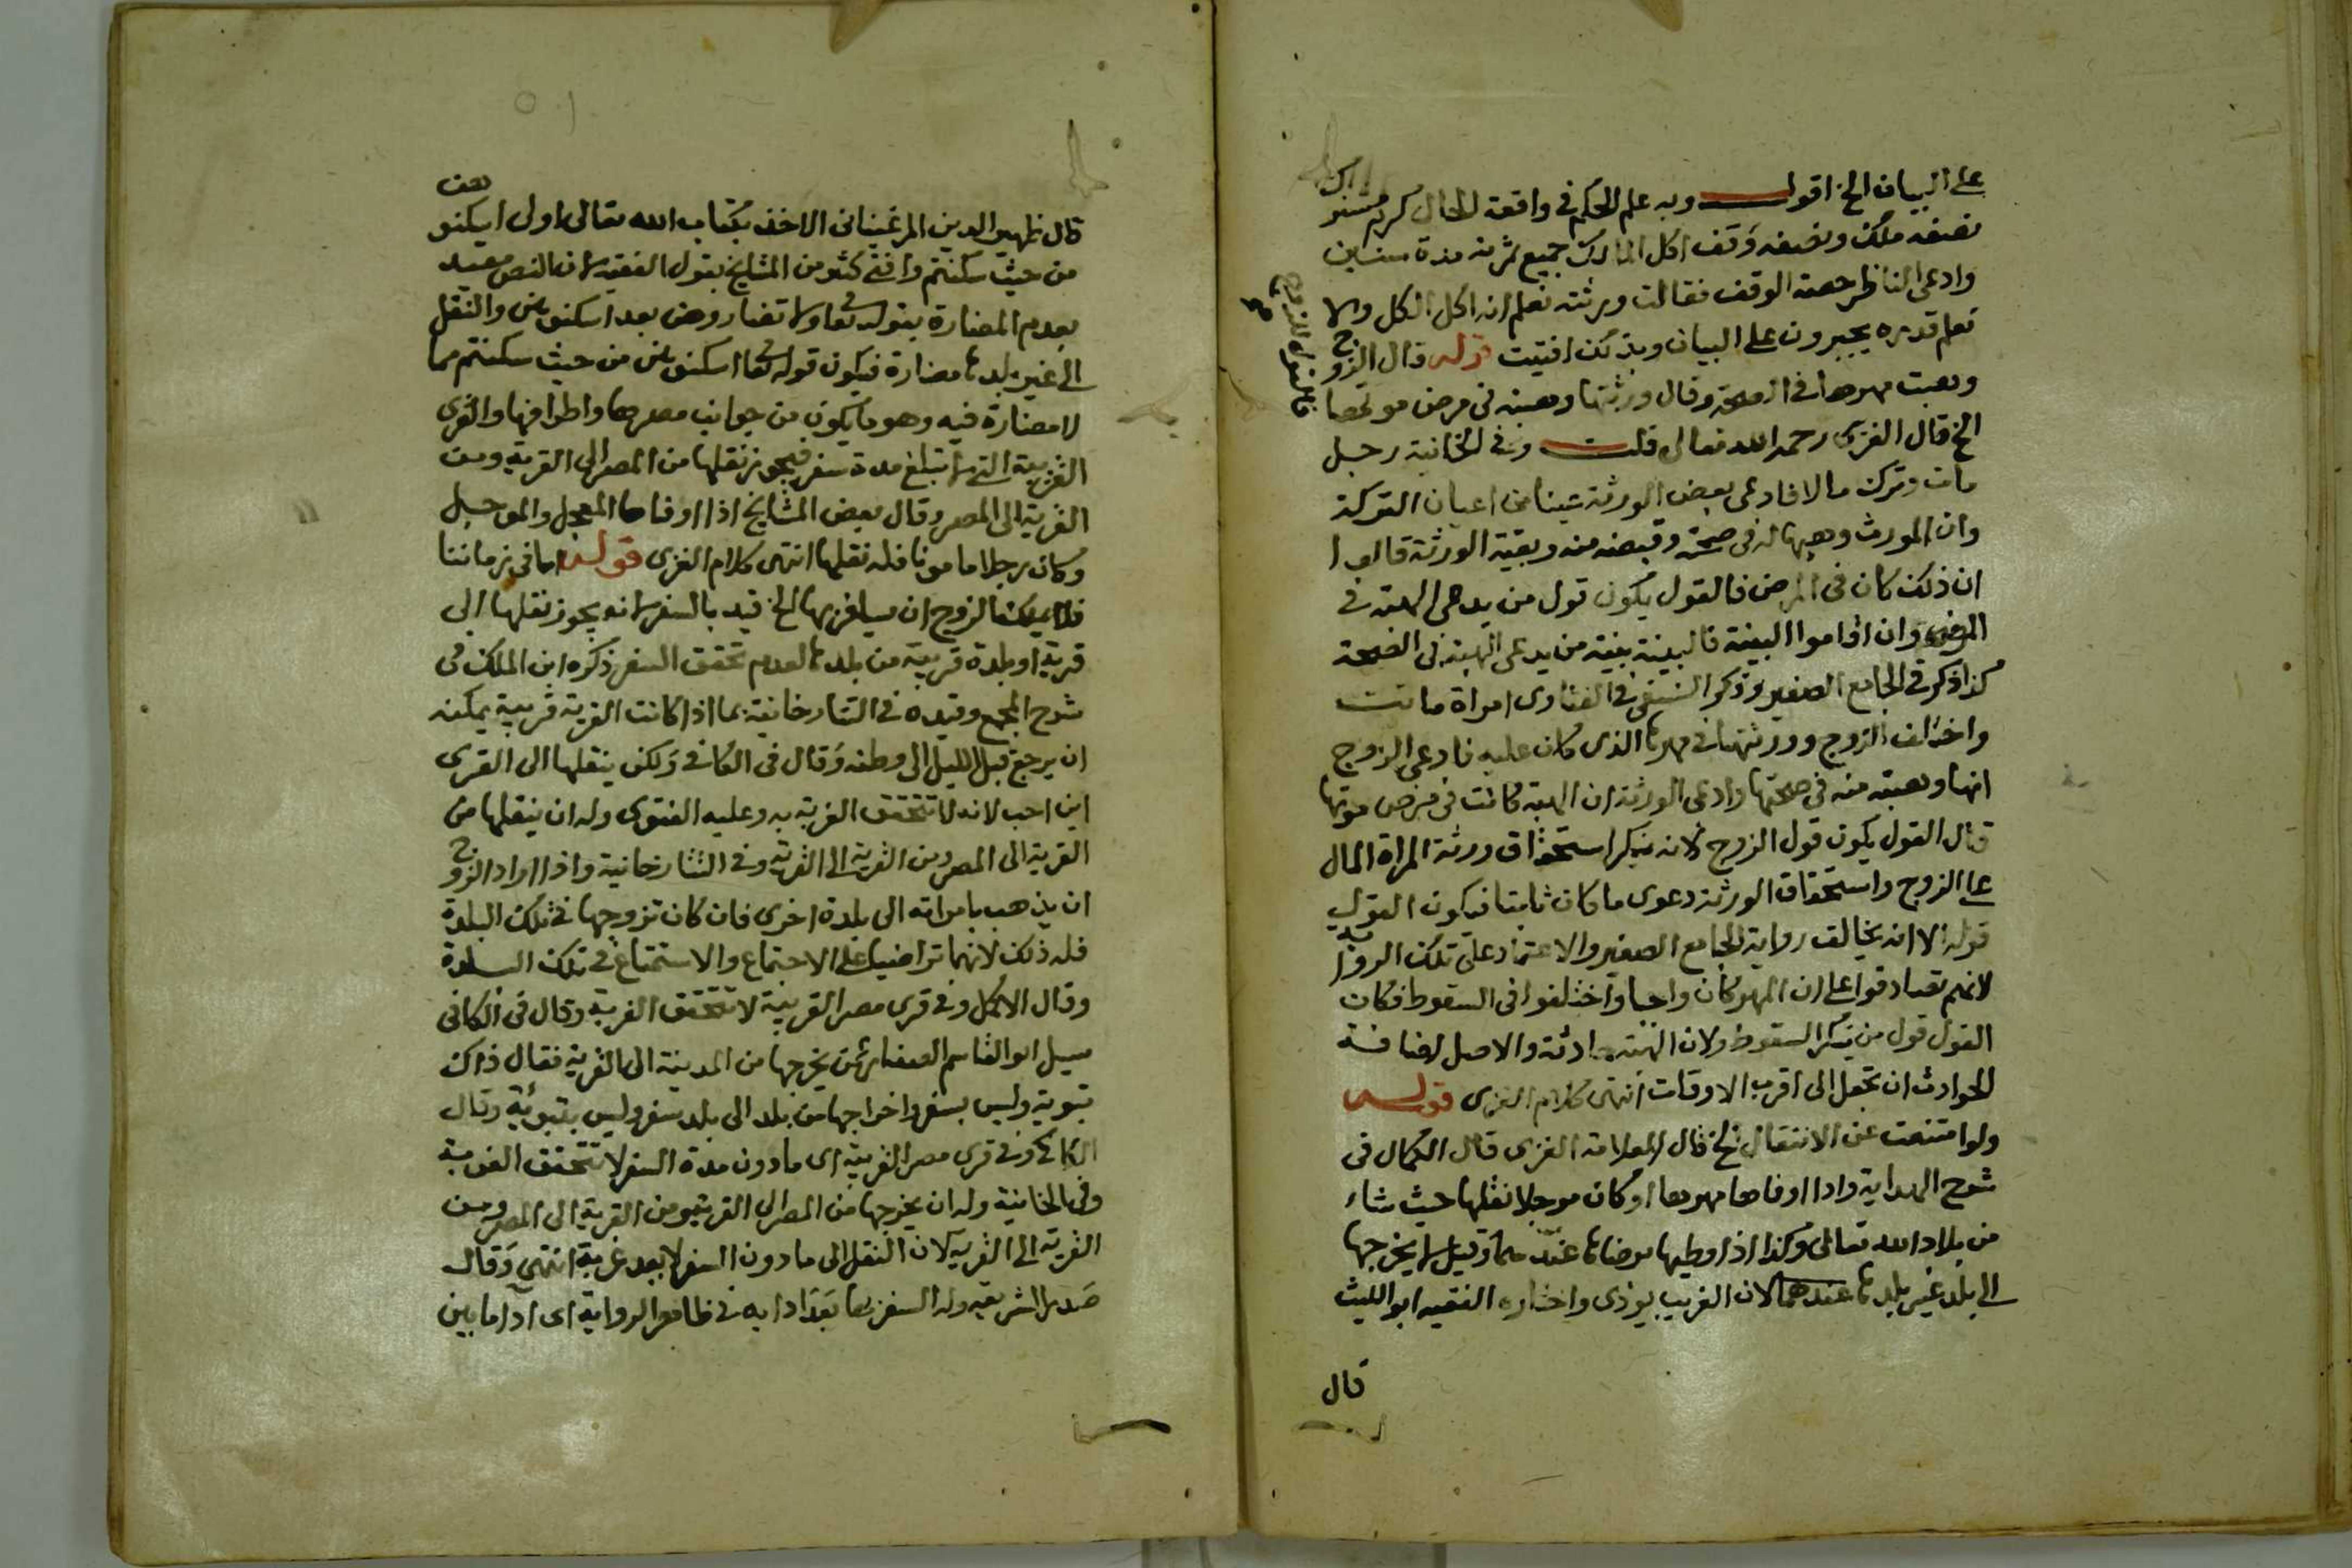 على البيان الخ اقول وبه علم الحكم في واقعة الحال كرم مشترك
نصفه ملك ونصفه وقف اكل المالك جميع ثمرته مدة سنين
وادعى الناظر حصة الوقف فقالت ورثته نعلم انه اكل الكل ولا
نعلم قدره يجبرون على البيان وبذلك افتيت قوله قال الزوج
وهبت مهرها في الصحة وقال ورثتها وهبته في مرض موتها
فالقول للزوج
الخ قال الغزي رحمه الله تعالى قلت وفي الخانية رجل
مات وترك مالا فادعى بعض الورثة عينا من اعيان التركة
وان المورث وهبها له في صحته وقبضه منه وبقية الورثة قالوا
ان ذلك كان في المرض فالقول يكون قول من يدعى الهبة في
المرض وان اقاموا البينة فالبينة بينة من يدعى الهبة في الصحة
كذا ذكر في الجامع الصغير وذكر النسفي في الفتاوى امراة ماتت
واختلف الزوج وورثتها في مهرها الذى كان عليه فادعى الزوج
انها وهبته منه في صحتها وادعى الورثة ان الهبة كانت في مرض موتها
قال القول يكون قول الزوج لانه ينكر استحقاق ورثة المراة المال
على الزوج واستحقاق الورثة دعوى ما كان ثابتا فيكون القول
قوله الا انه يخالف رواية الجامع الصغير والاعتماد على تلك الرواية
لانهم تصادقوا على ان المهر كان واجبا واختلفوا في السقوط فكان
القول قول من ينكر السقوط ولان الهبة حادثة والاصل اضافة
الحوادث ان تجعل الى اقرب الاوقات انتهى كلام الغزى قوله
ولو امتنعت عن الانتقال الخ قال العلامة الغزى قال الكمال في
شرح الهداية واذا اوفاها مهرها او كان موجلا نقلها حيث شاء
من بلاد الله تعالى وكذا اذا وطيها برضاها عندهما وقيل لا يخرجها
الى بلد غير بلدها عندهما لان الغريب يوذى واختاره الفقيه ابو الليث
قال
قال ظهير الدين المرغيناني الاخذ بكتاب الله تعالى اولى اسكنوهن
من حيث سكنتم وافتى كثير من المشايخ بقول الفقيه لان النص مقيد
بعدم المضارة بقوله تعالى ولا تضاروهن بعد اسكنوهن والنقل
الى غير بلدها مضارة فيكون قوله تعالى اسكنوهن من حيث سكنتم مما
لا مضارة فيه وهو ما يكون من جوانب مصرها واطرافها والقرى
القريبة التي لا تبلغ مدة سفر فيجوز نقلها من المصر الى القرية ومن
القرية الى المصر وقال بعض المشايخ اذا اوفاها المعجل والموجل
وكان رجلا مامونا فله نقلها انتهى كلام الغزى قوله اما في زماننا
فلا يملك الزوج ان يسافر بها الخ قيد بالسفر لانه يجوز نقلها الى
قرية او بلدة قريبة من بلدها لعدم تحقق السفر ذكره ابن الملك في
شرح المجمع وقيده في التتارخانية بما اذا كانت القرية قريبة يمكنه
ان يرجع قبل الليل الى وطنه وقال في الكافي ولكن ينقلها الى القرى
اين احب لانه لا تتحقق الغربة به وعليه الفتوى وله ان ينقلها من
القرية الى المصر ومن القرية الى القرية وفي التتارخانية واذا اراد الزوج
ان يذهب بامراته الى بلدة اخرى فان كان تزوجها في تلك البلدة
فله ذلك لانهما تراضيا على الاجتماع والاستمتاع في تلك البلدة
وقال الاكمل وفي قرى مصر القريبة لا تتحقق الغربة وقال في الكافي
سيل ابو القاسم الصفار عمن يخرجها من المدينة الى القرية فقال ذاك
تبوية وليس بسفر واخراجها من بلد الى بلد سفر وليس بتبوئة وقال
الكاكي وفي قرى مصر القريبة اى ما دون مدة السفر لا تتحقق الغربة
وفي الخانية وله ان يخرجها من المصر الى القرية ومن القرية الى المصر ومن
القرية الى القرية لان النقل الى ما دون السفر لا يعد غربة انتهى وقال
صدر الشريعة وله السفر بها بعد ادايه في ظاهر الرواية اى ادا ما بين